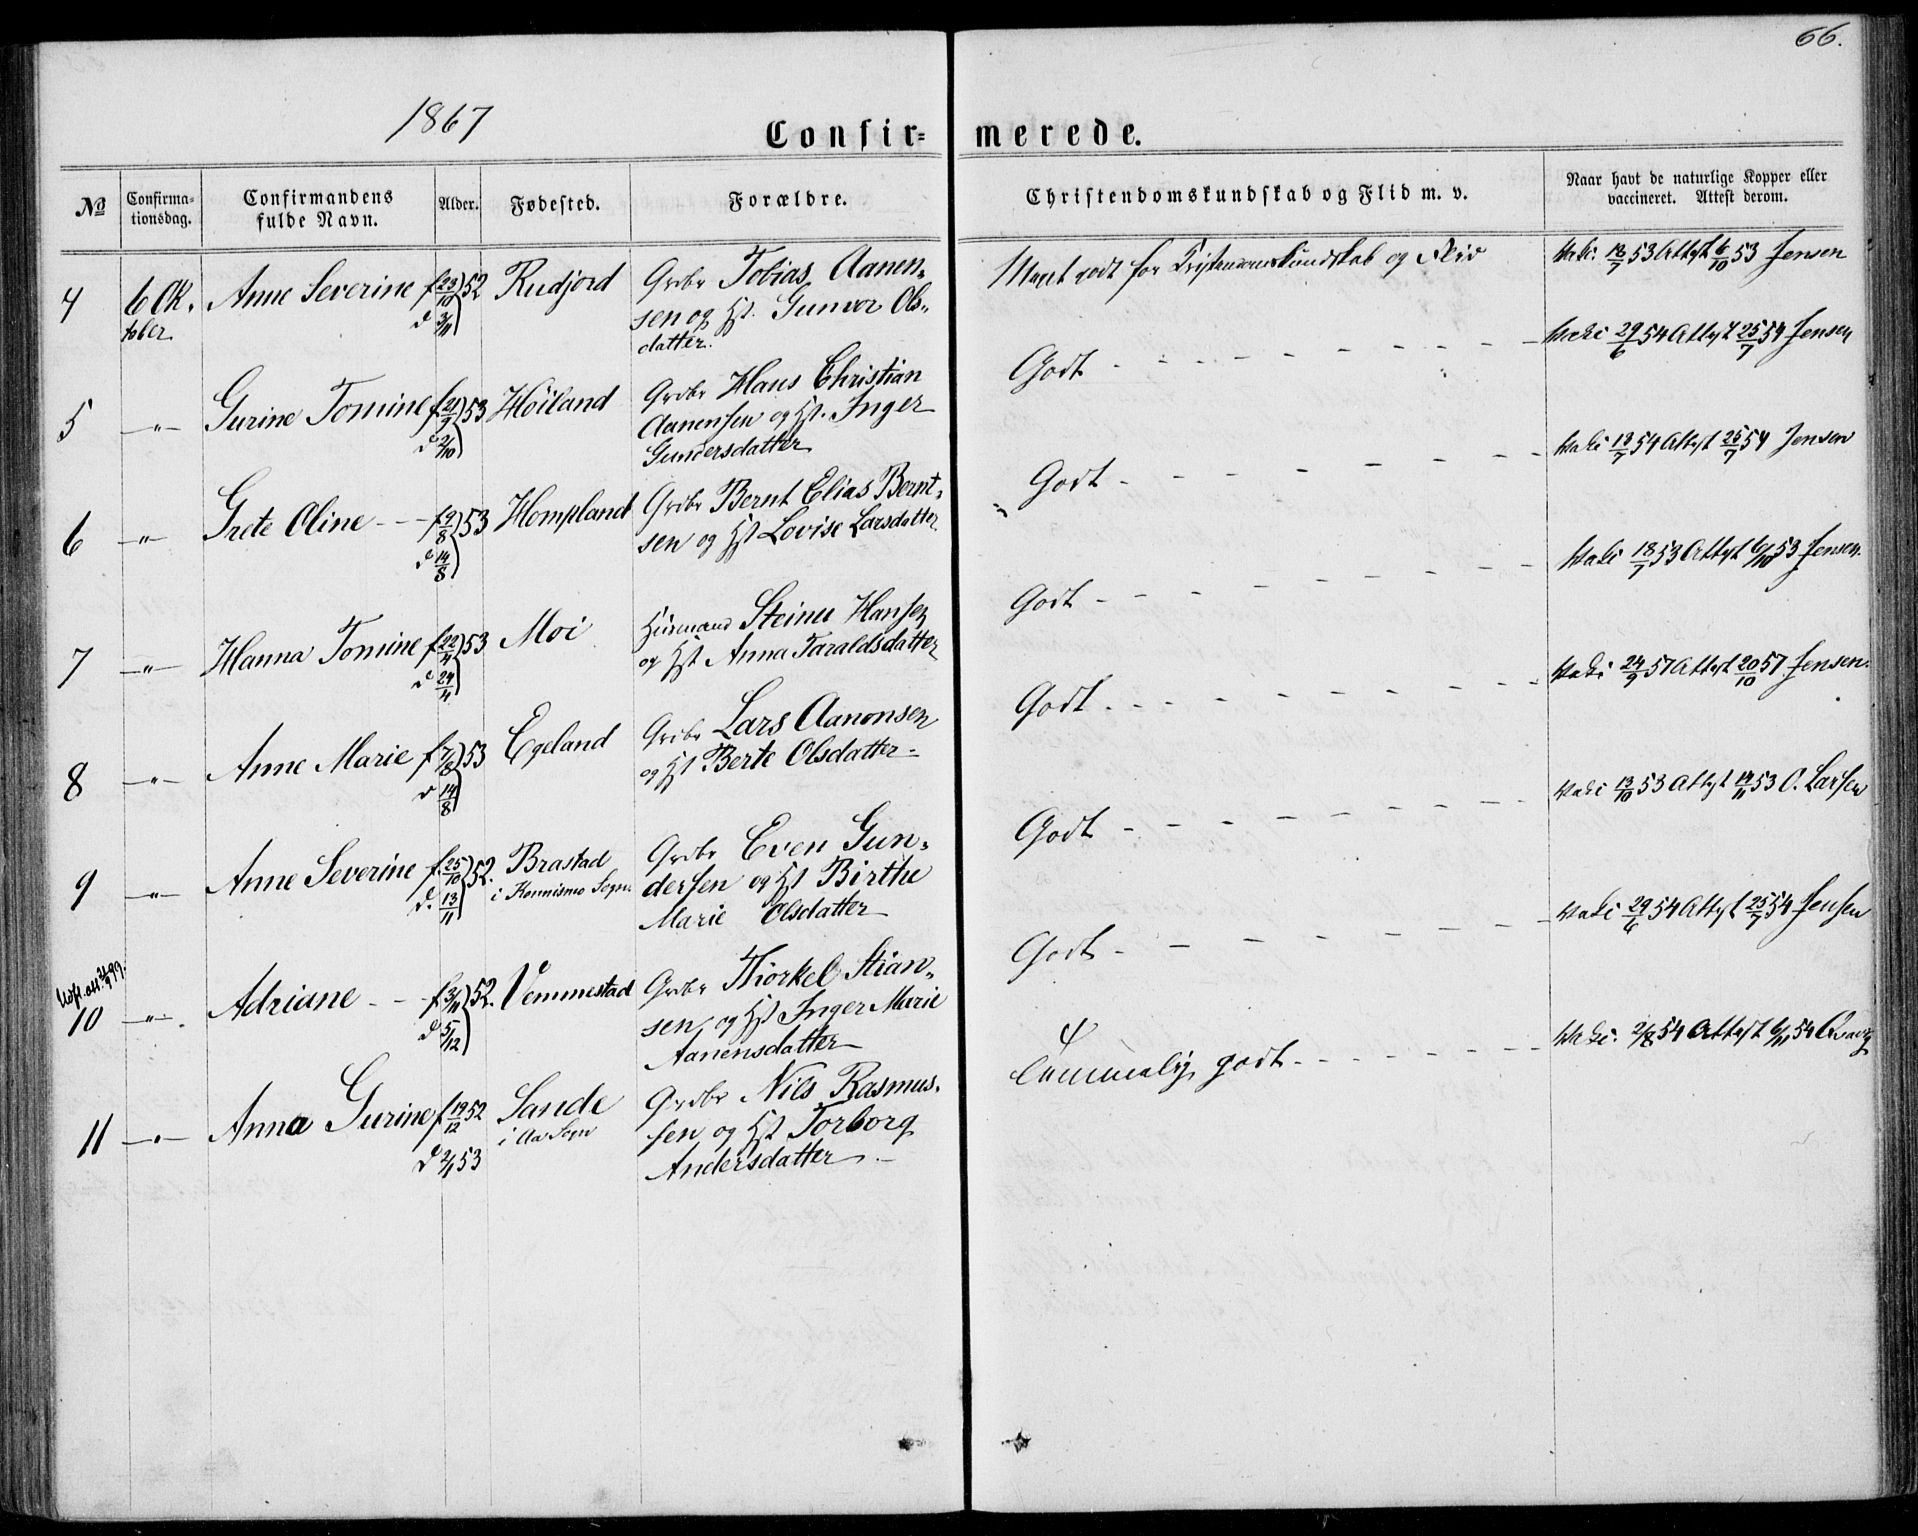 66.
1867
Confir-
merede.
No
Confirma-
tionsdag.
Confirmandens
fulde Navn.
Alder.
Fødested.
Forældre.
Christendomskundskab og Flid m. v.
Naar havt de naturlige Kopper eller
vaccineret. Attest derom.
4 6 Ok- Anne Severine f 23/10 52 Rudjord Grdbr Tobias Aanen-
tober d 3/11 sen og Hst. Gunvor Ols-
datter.
Meget godt for Kristendomskundskab og Flid
Vakc. 18/7 53 Attest 6/10 53 Jensen
5 -"- Gurine Tomine f 21/9 53 Höiland Grdbr Hans Christian
d 2/10 Aanensen og Hst. Inger
Gundersdatter
Godt - - - - - - - -
Vakc 29/6 54 Attest 25/7 54 Jensen
6 -"- Grete Oline - - f 9/8 53 Hompland Grdbr Bernt Elias Bernt-
d 14/8 sen og Hst Lovise Larsdatter
Godt - - - - - - -
Vakc 18/7 54 Attest 25/7 54 Jensen
7 -"- Hanna Tomine f 22/4 53 Moi Husmand Steinu Hansen
d 24/4 og Hst Anna Taraldsdatter
Godt - - - - - - -
Vakc 18/7 53 Attest 6/10 53 Jensen.
8 -"- Anne Marie f 7/8 53 Egeland Grdbr Lars Aanonsen
d 14/8 og Hst Berte Olsdatter -
Godt - - - - - - - -
Vakc 24/9 57 Attest 20/10 57 Jensen.
9 -"- Anne Severine f. 25/10 52. Brastad Grdbr Even Gun-
d. 13/11 i Konnismo Sogn. dersen og Hst Birthe
Marie Olsdatter
Godt - - - - - - -
Vakc 13/10 53 Attest 14/11 53 O. Larsen
10 -"- Adriane - - f 3/11 52. Vemmestad Grdbr Thorkel Stian-
d 5/12 sen og Hst Inger Marie
Aanensdatter
Godt - - - - - - -
Vakc 29/6 54 Attest 25/7 54 Jensen
11 -"- Anna Gurine f 19/12 52 Sande Grdbr Nils Rasmus-
i Aa Sogn sen og Hst Torborg
d 2/1 53 Andersdatter -
Temmelig godt - - - - - - -
Vakc. 2/8 54 Attest 6/11 54